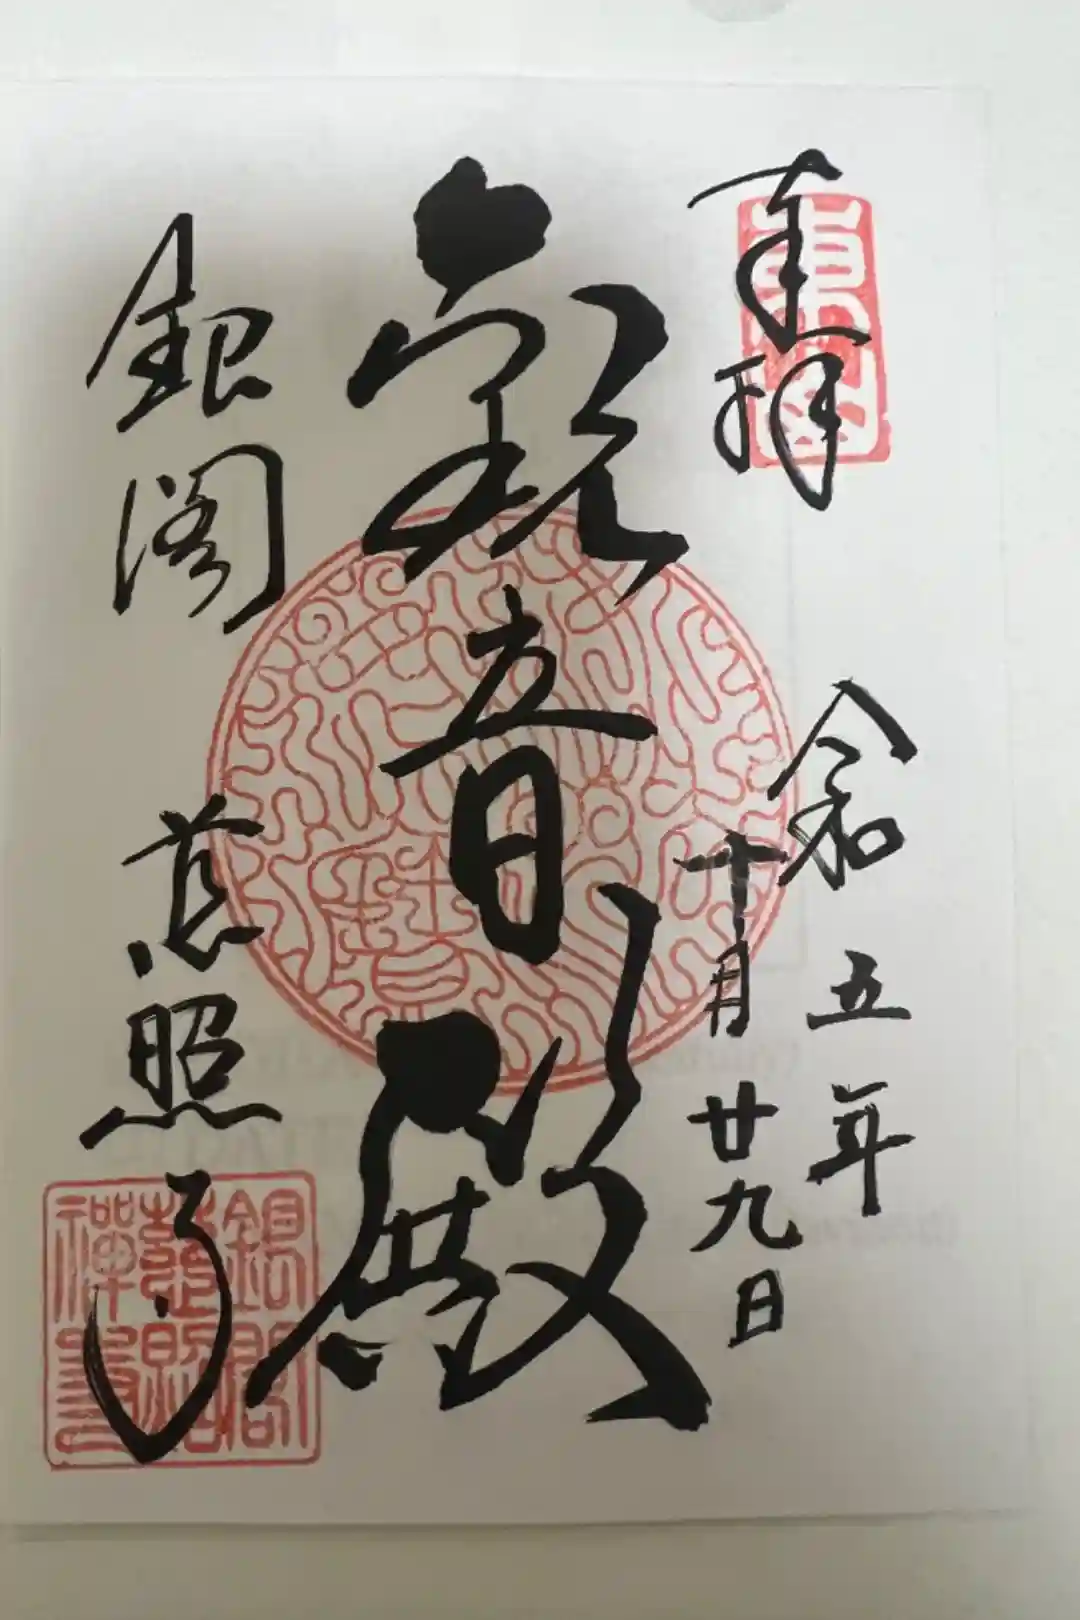 奉拝
東山
令和五年
十月廿九日
觀音殿
銀閣
慈照寺
銀閣
慈照
禅寺